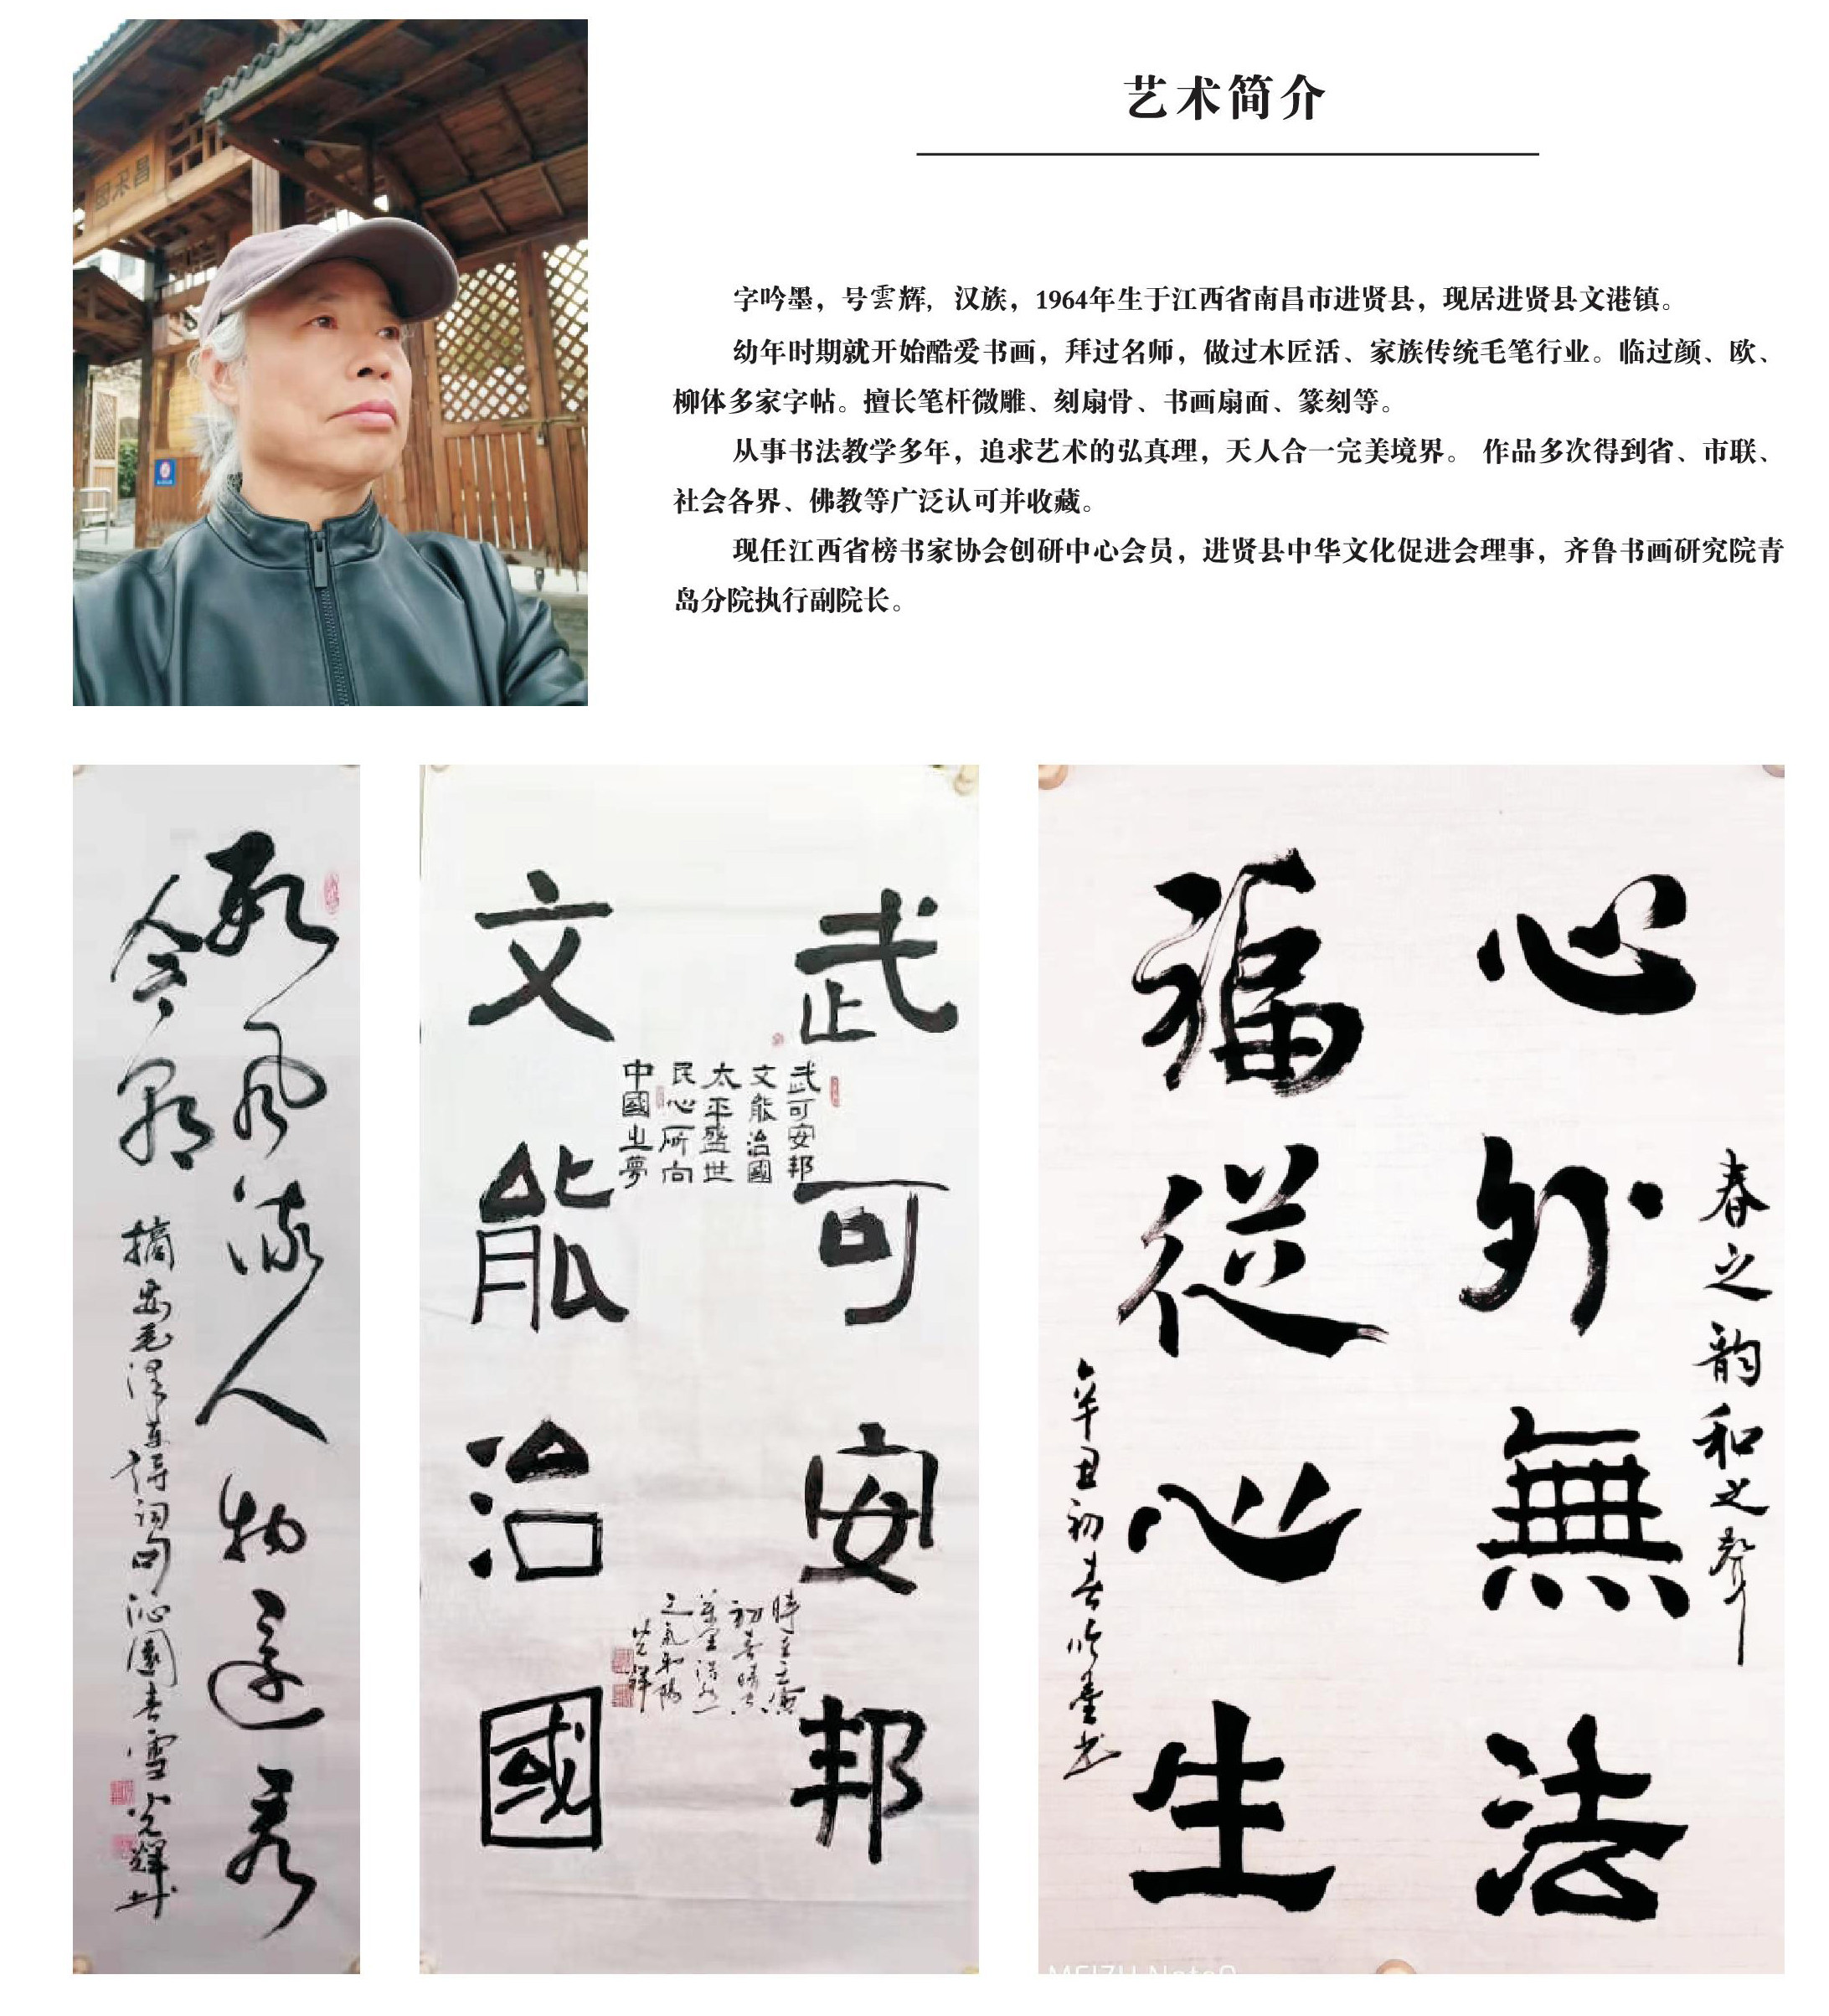 艺术简介
字吟墨，号雲辉，汉族，1964年生于江西省南昌市进贤县，现居进贤县文港镇。
幼年时期就开始酷爱书画，拜过名师，做过木匠活、家族传统毛笔行业。临过颜、欧、
柳体多家字帖。擅长笔杆微雕、刻扇骨、书画扇面、篆刻等。
从事书法教学多年，追求艺术的弘真理，天人合一完美境界。 作品多次得到省、市联、
社会各界、佛教等广泛认可并收藏。
现任江西省榜书家协会创研中心会员，进贤县中华文化促进会理事，齐鲁书画研究院青
岛分院执行副院长。
风流人物还看
今朝
摘毛泽东诗词句沁園春雪
武可安邦
文能治國
武可安邦
文能治國
太平盛世
民心所向
中國之夢
春之韵和之聲
心外無法
福從心生
辛丑初春吟墨书
MEIZU Note9